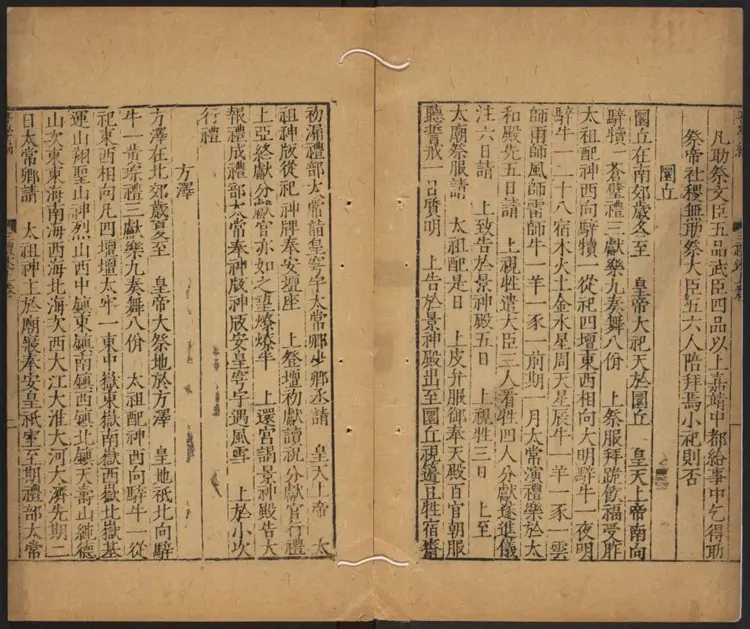 凡助祭文臣五品武臣四品以上嘉靖中都給事中乞得助
祭帝社稷無助祭大臣五六人陪拜焉小祀則否
圜丘
圜丘在南郊歲冬至　皇帝大祀天於圜丘　皇天上帝南向
騂犢一蒼璧禮三獻樂九奏舞八佾　上祭服拜跪飲福受胙
太祖配神西向騂犢一從祀四壇東西相向大明騂牛一夜明
騂牛一二十八宿木火土金水星周天星辰牛一羊一豕一雲
師雨師風師雷師牛一羊一豕一前期一月太常演禮樂於太
和殿先五日請　上視牲遣大臣三人看牲四人分獻遂進儀
注六日請　上致告於景神殿五日　上視牲三日　上至
太廟祭服請　太祖配是日　上皮弁服御奉天殿百官朝服
聽誓戒一日質明　上告於景神殿出至圜丘視籩豆牲宿齋
初漏禮部太常請皇穹宇太常卿少卿丞請　皇天上帝　太
祖神版從祀神牌奉安壇座　上登壇初獻讀祝分獻官行禮
上亞終獻分獻官亦如之望燎燎半　上還宮謁景神殿告大
報禮成禮部太常奉神版神版安皇穹宇遇風雪　上於小次
行禮
方澤
方澤在北郊歲夏至　皇帝大祭地於方澤　皇地祇北向騂
牛一黃琮禮三獻樂九奏舞八佾　太祖配神西向騂牛一從
祀東西相向凡四壇壇太牢一東中嶽東嶽南嶽西嶽北嶽基
運山翔聖山神烈山西中鎮東鎮南鎮西鎮北鎮天壽山純德
山次東東海南海西海北海次西大江大淮大河大濟先期二
日太常卿請　太祖神主於廟寢奉安皇祇室至期禮部太常